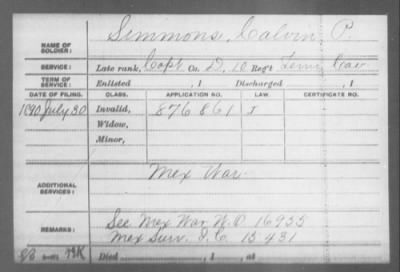 NAME OF SOLDIER: Simmons, Calvin P.
SERVICE: Late rank, Capt Co. D, 10 Reg't Tenn Cav
TERM OF SERVICE: Enlisted , 1 Discharged , 1
DATE OF FILING. CLASS. APPLICATION NO. LAW. CERTIFICATE NO.
1890 July 30 Invalid, 876861 J
Widow,
Minor,
ADDITIONAL SERVICES: Mex War
REMARKS: See Mex War W.O. 16955
Mex Surv. S.C. 15431
Died , 1 , at